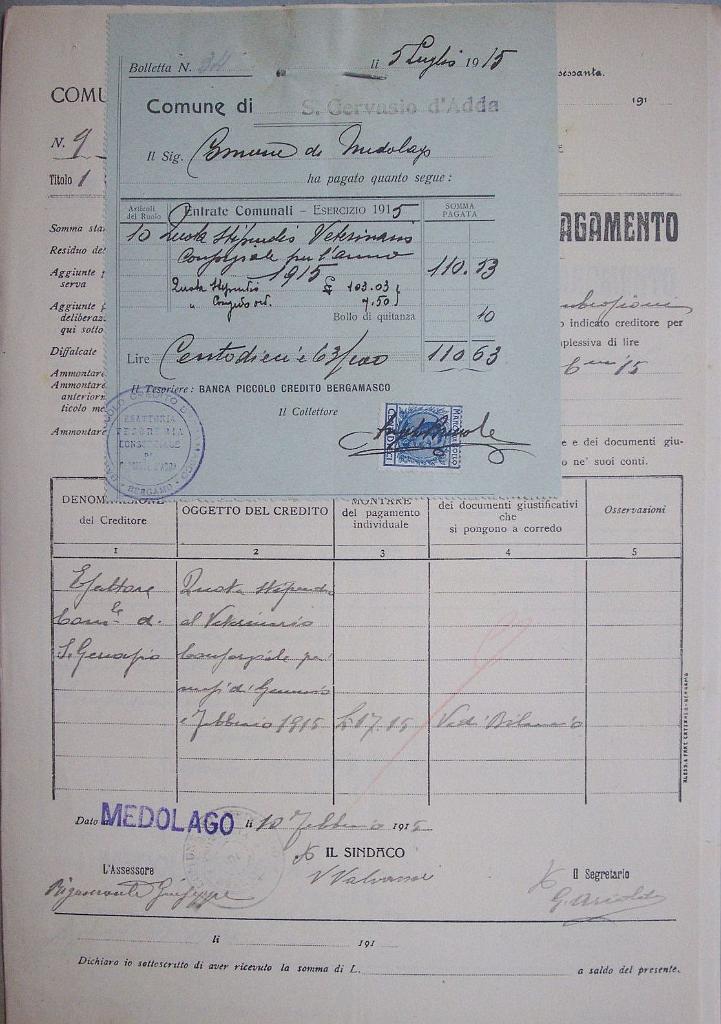 Bolletta N. li 5 Luglio 1915
Comune di S. Gervasio d'Adda
Il Sig. Comune di Medolago
ha pagato quanto segue:
Articoli del Ruolo
Entrate Comunali – Esercizio 1915
SOMMA PAGATA
10 Quota Stipendio Veterinario
Consorziale per l'anno
1915
110.53
Quota Stipendio £ 103.03
" Congedo ord. 7,50
Bollo di quitanza 10
Lire Centodieci e 63/100 110 63
Il Tesoriere: BANCA PICCOLO CREDITO BERGAMASCO
Il Collettore
ESATTORIA
TESORERIA
CONSORZIALE
DI
BERGAMO
MARCA DA BOLLO
CENT. DIECI
sessanta.
COMU
191
N. 9
Titolo 1
AGAMENTO
Somma sta
Residuo de
Aggiunte
serva
Aggiunte
deliberaz
qui sotto
Diffalcate
Ammontare
Ammontare
anteriorn
ticolo me
Ammontare
o indicato creditore per
mplessiva di lire
e e dei documenti giu-
o ne' suoi conti.
DENOMINAZIONE
del Creditore
OGGETTO DEL CREDITO
MONTARE
del pagamento
individuale
dei documenti giustificativi
che
si pongono a corredo
Osservazioni
1 2 3 4 5
Esattore Quota stipendio
Com.le di al Veterinario
S. Gervasio Consorziale per
mesi di Gennaio
e Febbraio 1915 £ 17.15 Vedi Bilancio
Dato a MEDOLAGO li 10 Febbraio 1915
IL SINDACO
L'Assessore
Il Segretario
Giuseppe
li 191
Dichiaro io sottoscritto di aver ricevuto la somma di L. a saldo del presente.